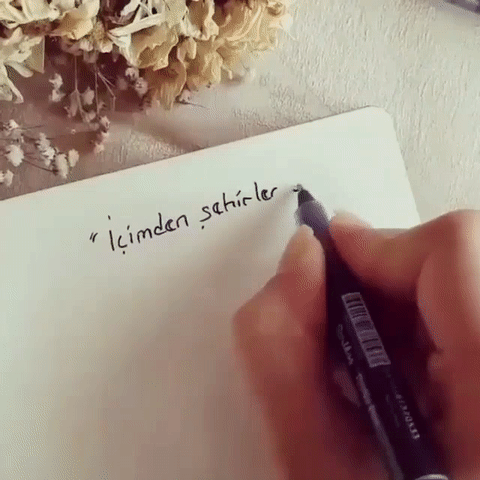 "İçimden şehirler